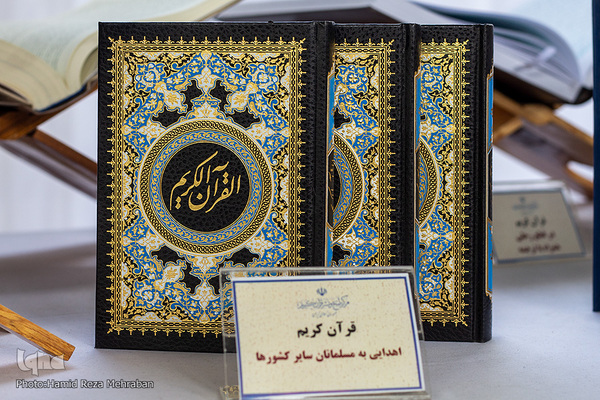 القرآن الكريم
قرآن کریم
اهدایی به مسلمانان سایر کشورها
قرآن کریم
iqna
Photo:Hamid Reza Mehraban